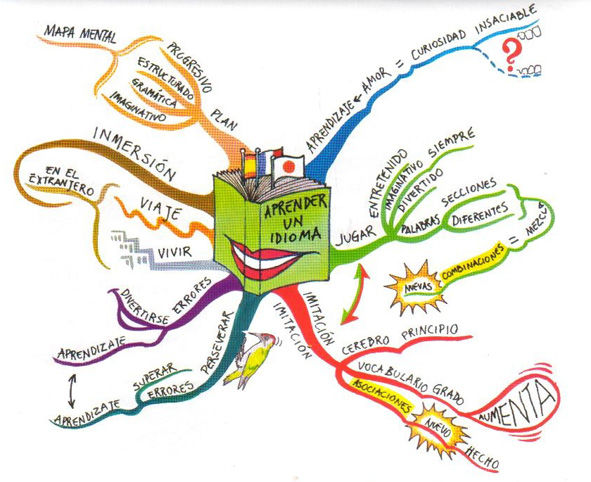 APRENDER
UN
IDIOMA
APRENDIZAJE AMOR = CURIOSIDAD INSACIABLE
?
JUGAR
ENTRETENIDO
IMAGINATIVO SIEMPRE
DIVERTIDO
PALABRAS
SECCIONES
DIFERENTES
= MEZCLA
COMBINACIONES
NUEVAS
IMITACIÓN
IMITACIÓN
CEREBRO PRINCIPIO
VOCABULARIO GRADO
AUMENTA
ASOCIACIONES
NUEVO
HECHO
PERSEVERAR
SUPERAR
ERRORES
APRENDIZAJE
ERRORES
DIVERTIRSE
APRENDIZAJE
VIVIR
VIAJE
INMERSIÓN
EN EL
EXTRANJERO
PLAN
PROGRESIVO
ESTRUCTURADO
GRAMÁTICA
IMAGINATIVO
MAPA MENTAL